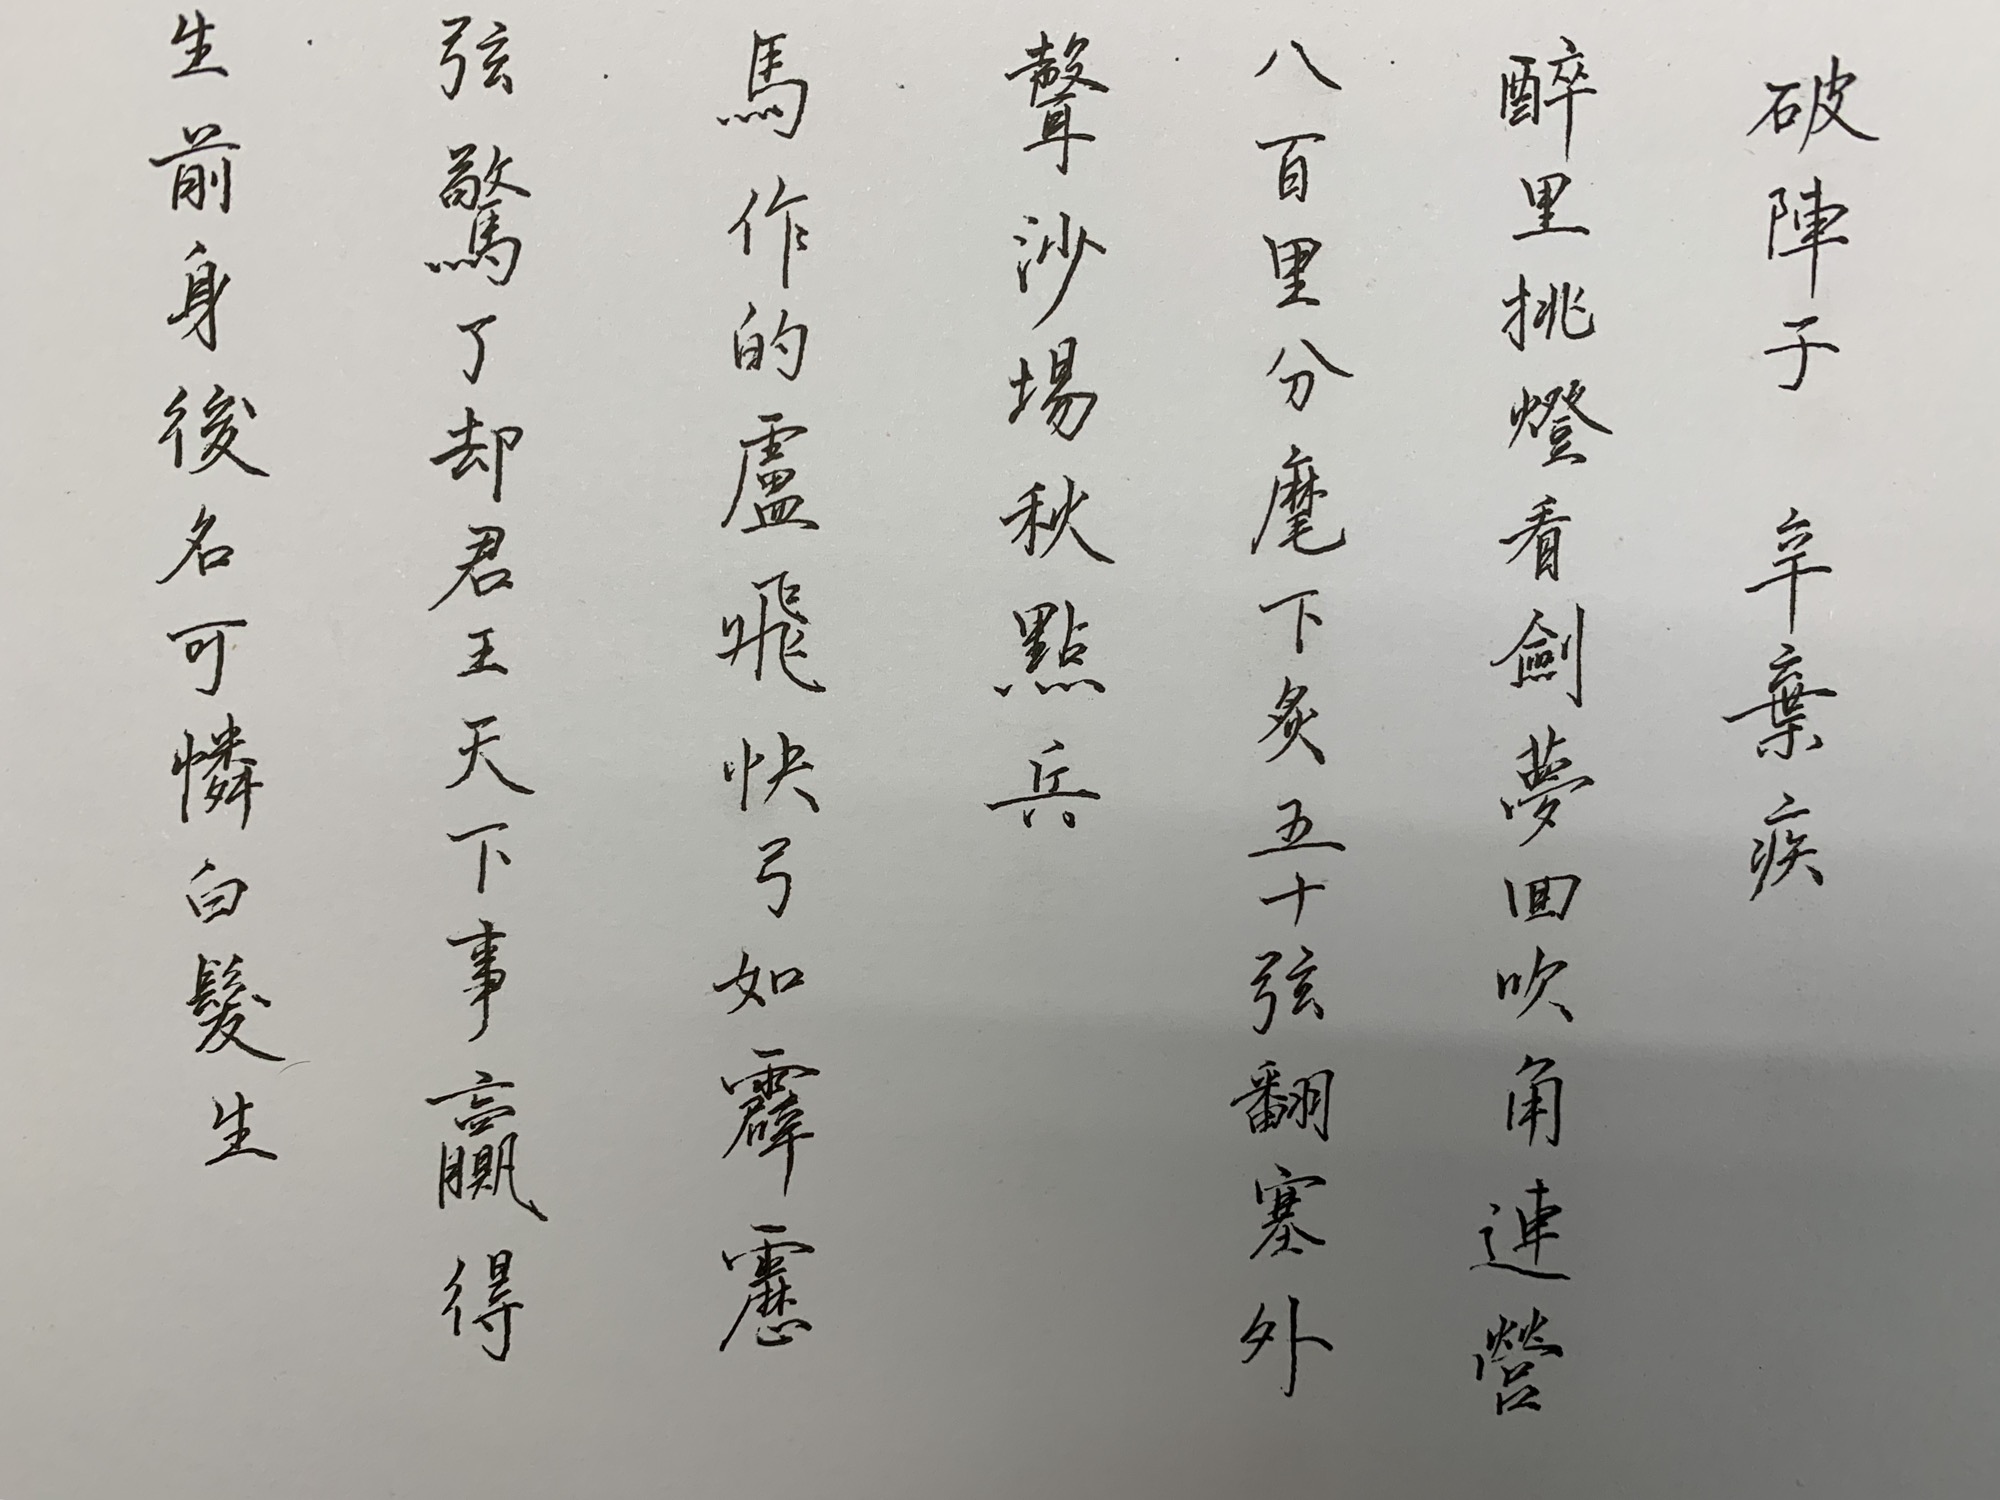 破陣子 辛棄疾
醉里挑燈看劍夢回吹角連營
八百里分麾下炙五十弦翻塞外
聲沙場秋點兵
馬作的盧飛快弓如霹靂
弦驚了却君王天下事贏得
生前身後名可憐白髮生